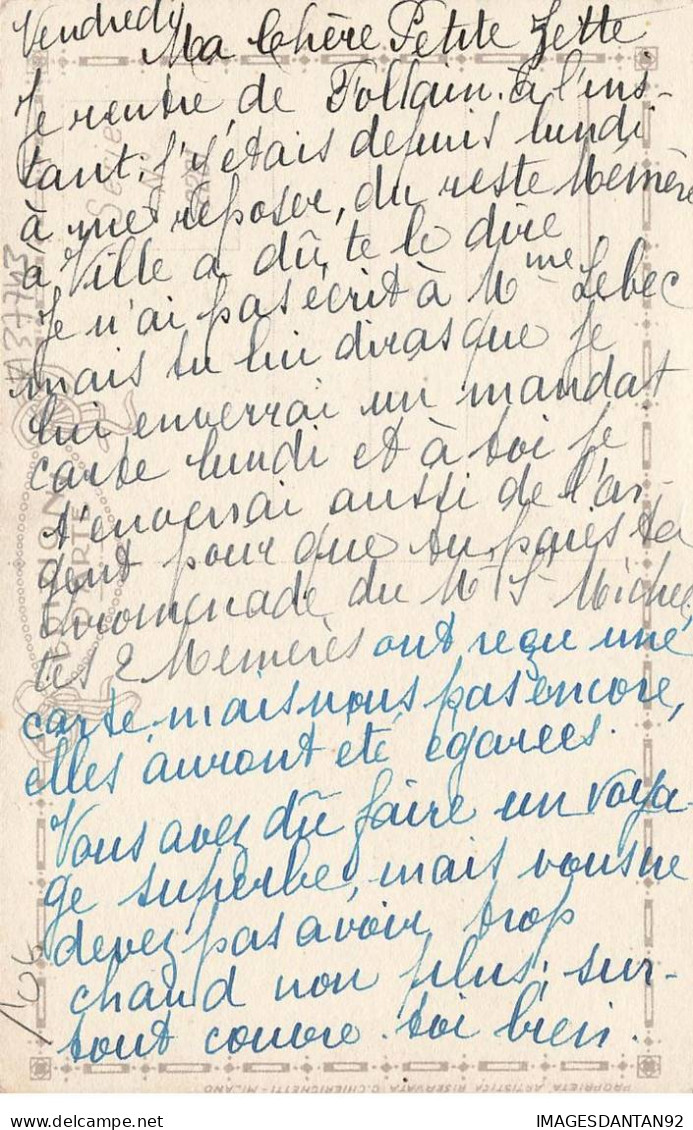 Vendredi
Ma Chère Petite Zette
Je rentre de Follain. à l'ins-
tant. J'y étais depuis lundi
à me reposer, du reste Mémère
à Ville a dû te le dire
Je n'ai pas écrit à Mme Lebec
mais tu lui diras que je
lui enverrai un mandat
carte lundi et à toi je
t'enverrai aussi de l'ar-
gent pour que tu paies ta
promenade du Mt St Michel,
tes 2 Memères ont reçu une
carte, mais nous pas encore,
elles auront été égarées.
Vous avez dû faire un voya-
ge superbe, mais vous ne
devez pas avoir trop
chaud non plus, sur-
tout couvre-toi bien.
A37743
106
Serie
No
UNION
PROPRIETÀ ARTISTICA RISERVATA G. CHIERICHETTI - MILANO
IMAGESDANTAN92